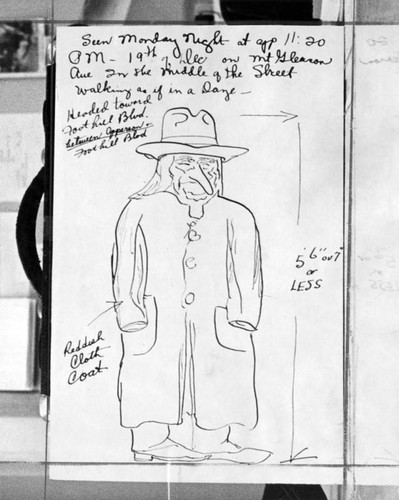 Seen Monday Night at app 11:20
P.M - 19th of Dec on Mt Gleason
Ave In the Middle of the Street
Walking as if in a Daze -
Headed toward
Foothill Blvd.
between Apperson -
Foothill Blvd
5'6" or 7"
or
LESS
Reddish
Cloth
Coat